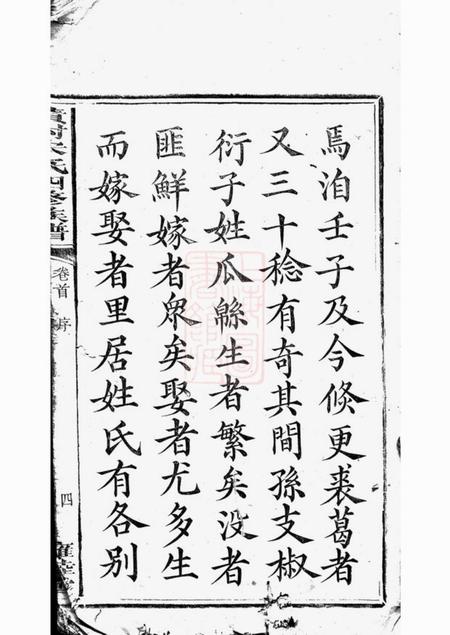 焉洎壬子及今倏更裘葛者
又三十稔有奇其間孫支椒
衍子姓瓜緜生者繁矣没者
匪鮮嫁者眾矣娶者尤多生
而嫁娶者里居姓氏有各別
氏四修族譜
卷首
序
四